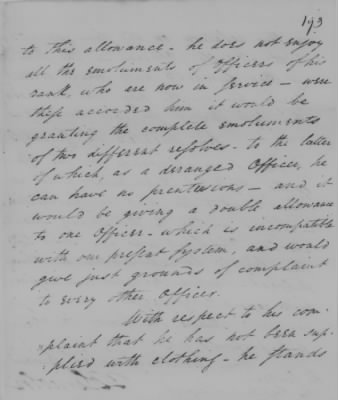 193
to this allowance - he does not enjoy
all the emoluments of Officers of his
rank, who are now in service - were
these accorded him it would be
granting the complete emoluments
of two different resolves - to the latter
of which, as a deranged Officer, he
can have no pretensions - and it
would be giving a double allowance
to one Officer - which is incompatible
with our present System, and would
give just grounds of complaint
to every other Officer.
With respect to his com-
plaint that he has not been sup-
plied with clothing - he stands